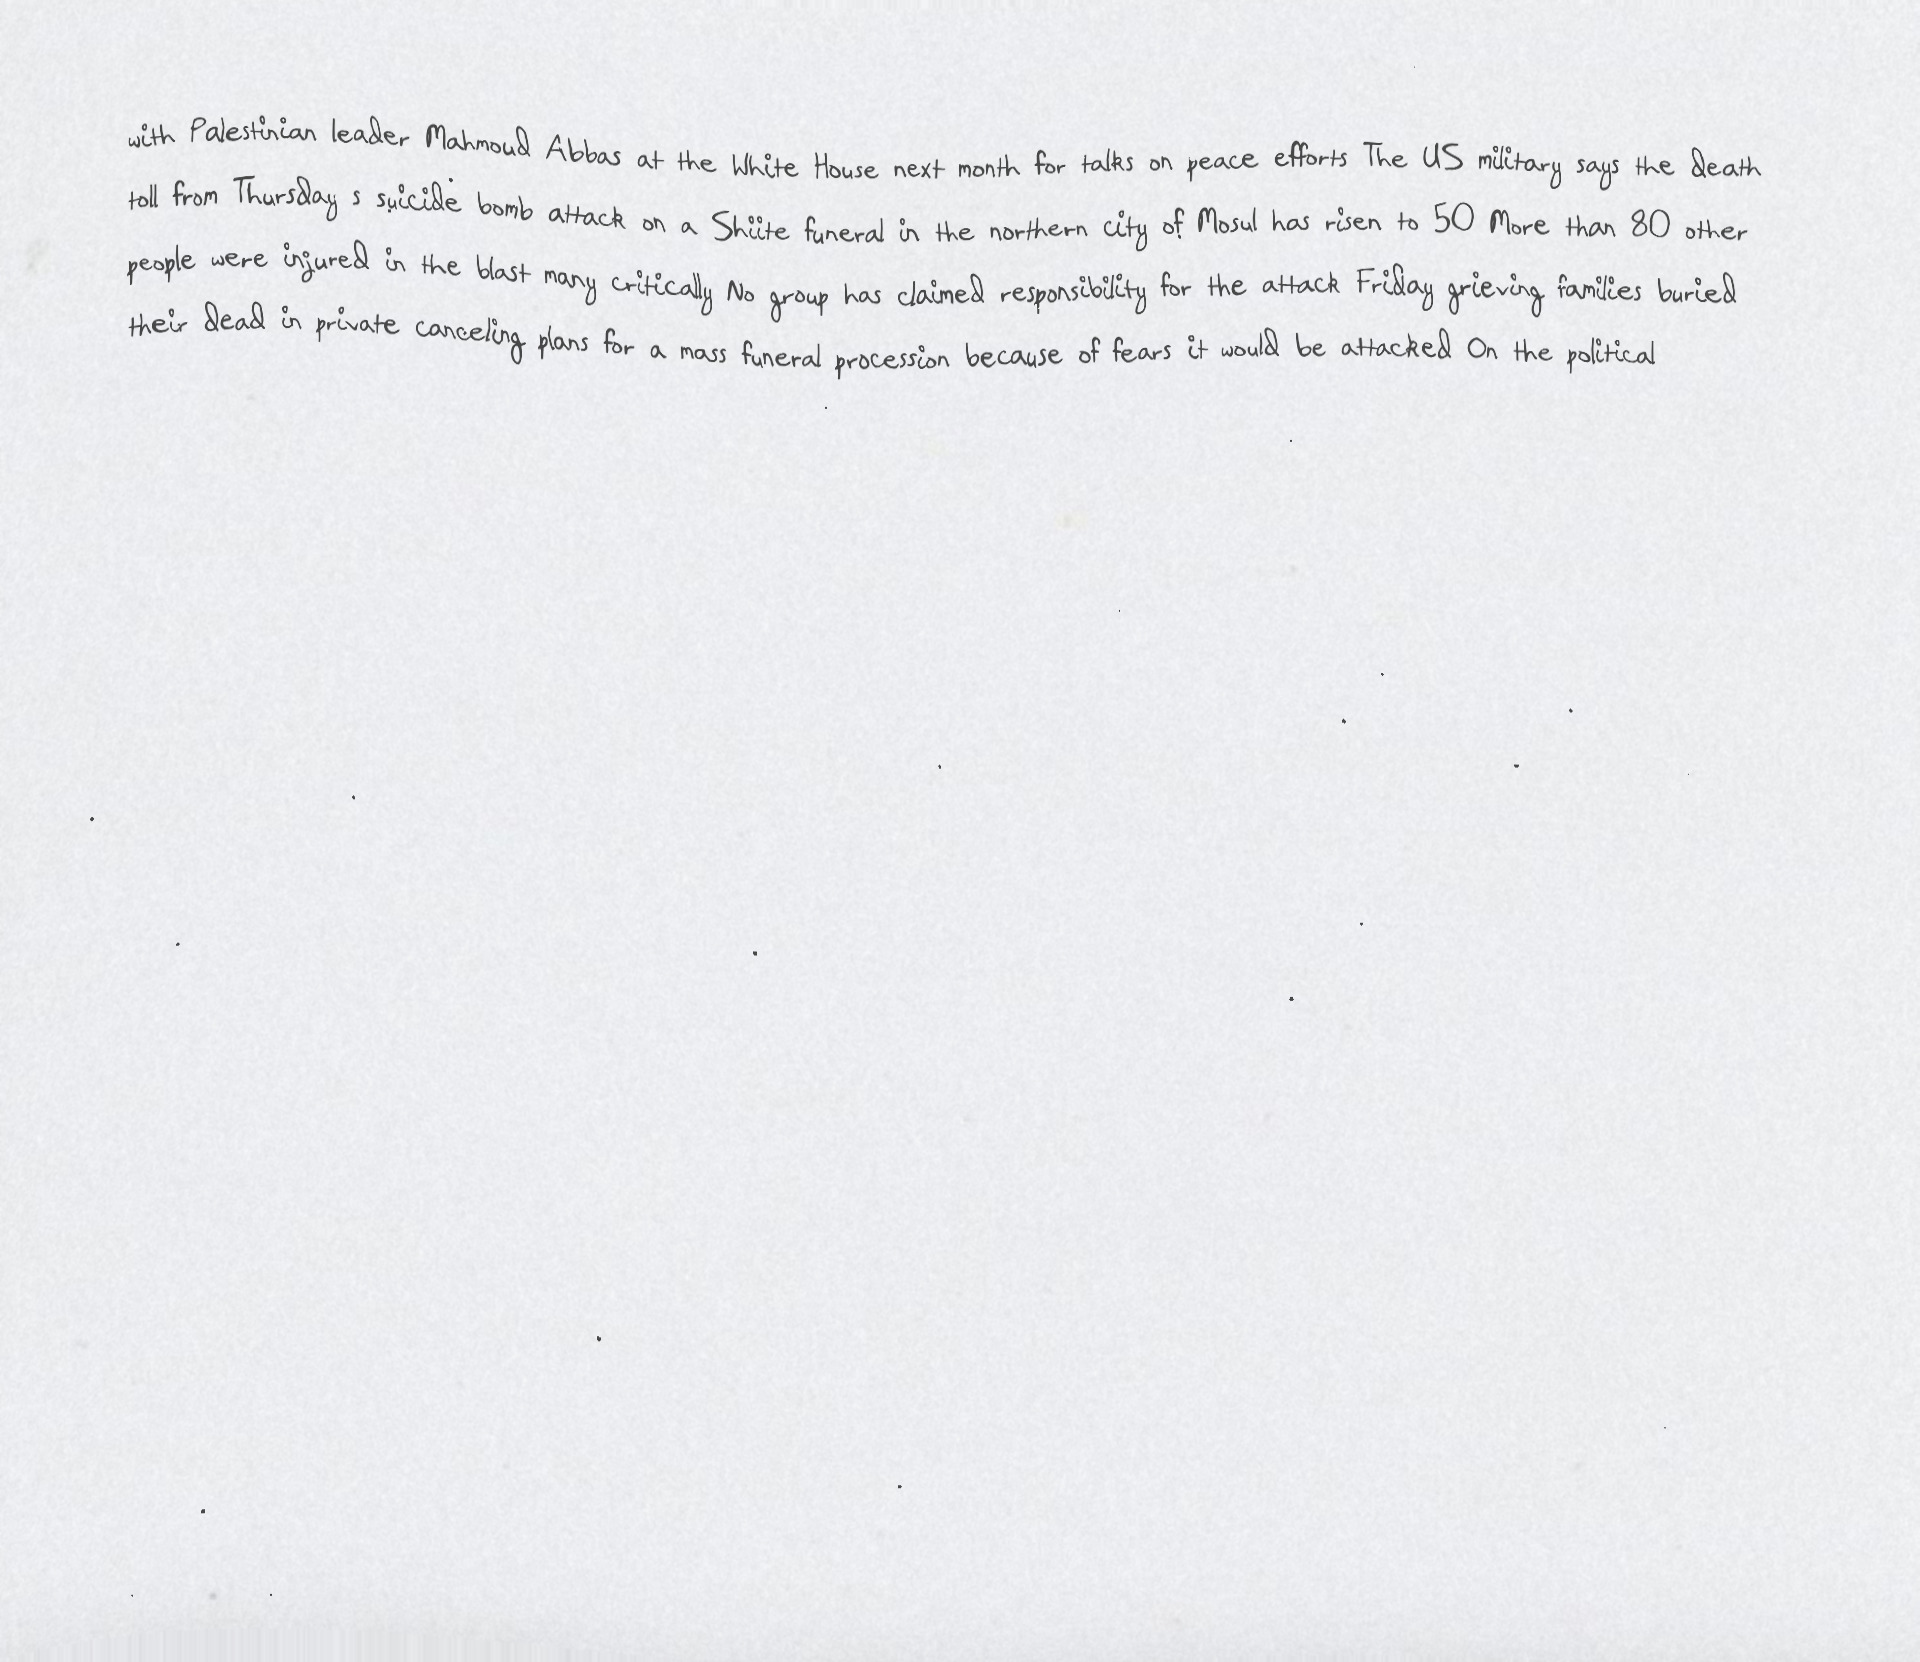 with Palestinian leader Mahmoud Abbas at the White House next month for talks on peace efforts The US military says the death
toll from Thursday s suicide bomb attack on a Shiite funeral in the northern city of Mosul has risen to 50 More than 80 other
people were injured in the blast many critically No group has claimed responsibility for the attack Friday grieving families buried
their dead in private canceling plans for a mass funeral procession because of fears it would be attacked On the political